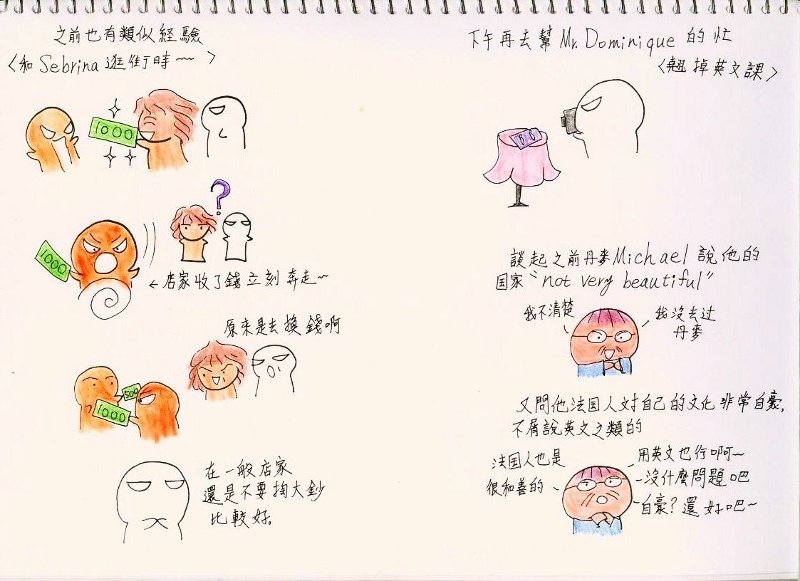 之前也有類似經驗
〈和Sebrina逛街時~~〉
1000
?
1000
←店家收了錢立刻奔走~
原來是去換錢啊
500
1000
在一般店家
還是不要掏大鈔
比較好。
下午再去幫Mr. Dominique的忙
〈翹掉英文課〉
談起之前丹麥Michael說他的
国家"not very beautiful"
我不清楚
我沒去过
丹麥
又問他法国人对自己的文化非常自豪,
不屑說英文之類的
法国人也是
很和善的
用英文也行啊~
沒什麼問題吧
自豪?還好吧~